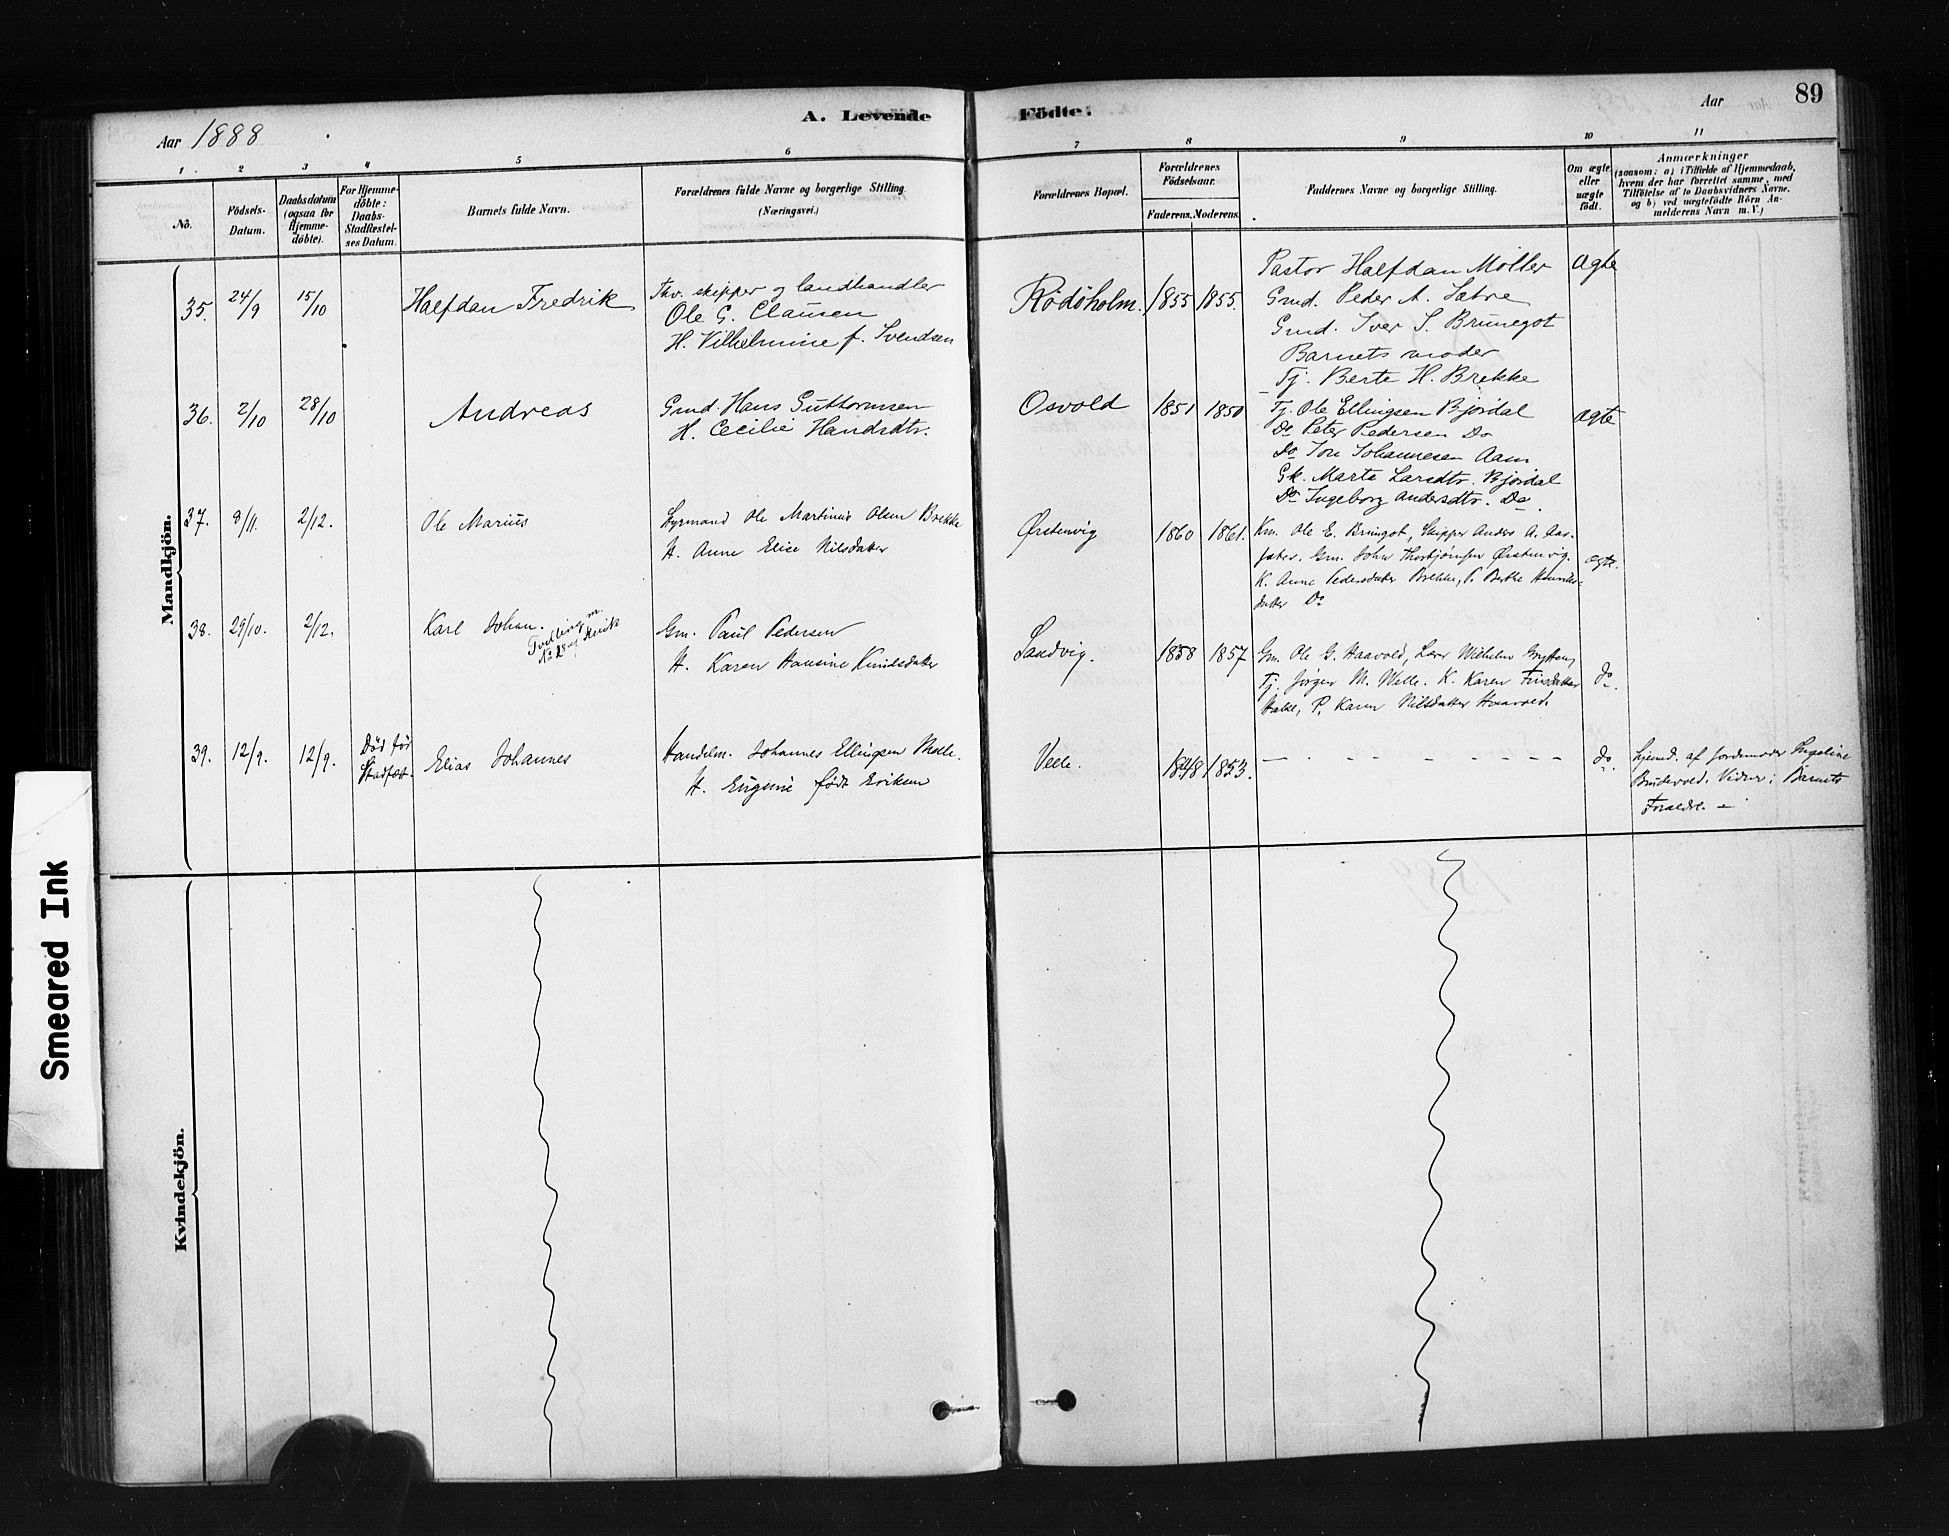 A. Levende Födte.
89
Aar 1888
Aar
1 2 3 4 5 6 7 8 9 10 11
No.
Födsels-Datum.
Daabsdatum (ogsaa for Hjemme-döbte).
For Hjemme-döbte: Daabs-Stadfæstel-ses Datum.
Barnets fulde Navn.
Forældrenes fulde Navne og borgerlige Stilling.
(Næringsvei.)
Forældrenes Bopæl.
Forældrenes Födselsaar.
Faderens. Moderens.
Faddernes Navne og borgerlige Stilling.
Om ægte eller uægte födt.
Anmærkninger
(saasom: a) i Tilfælde af Hjemmedaab,
hvem der har forrettet samme, med
Tilföielse af to Daabsvidners Navne,
og b) ved uægtefödte Börn An-
melderens Navn m. V.)
Mandkjön.
35. 24/9 15/10 Halfdan Fredrik
skipper og landhandler
Ole G. Clausen
H. Vilhelmine f. Svendsen
Rödöholm. 1855 1855.
Pastor Halfdan Möller
Gmd. Peder A. Sætre
Gmd. Iver S. Brunegot
Barnets moder
Tj. Berte H. Brekke
Ægte
36. 2/10 28/10 Andreas
Gmd. Hans Guttormsen
H. Cecilie Handsdtr.
Osvold 1851 1850
Tj. Ole Ellingsen Björdal
Do Peter Pedersen Do
Do Jon Johannesen Aam
Gk. Marta Larsdtr. Björdal
Do Ingeborg Andersdtr. Do.
Ægte
37. 8/11. 2/12. Ole Marius
Ole Martinus Olsen Brekke
H. Anne Elise Nilsdatter
Ørstenvig 1860 1861.
Km. Ole E. Brungot, Skipper Anders A. Aas-
sæter. Gm. Johan Thorbjørnsen Ørstenvig.
K. Anne Pedersdatter Brekke, P. Berthe
datter Do
ægte.
38. 29/10. 2/12. Karl Johan.
Tvilling m.
No 28 af
Gm. Paul Pedersen
H. Karen Hansine Knudsdatter
Sandvig. 1858 1857
Gm. Ole G. Haavold, Lærer Wilhelm
Tj. Jörgen M. Welle. K. Karen
P. Karen Nilsdatter Haavold.
do.
39. 12/9. 12/9. Död för Stadfæst. Elias Johannes
Handelsm. Johannes Ellingsen Melle.
H. Eugenie født Eriksen
Velle. 1848 1853. — - - - - - - -
do.
Hjemd. af Jordemoder
Vidner: Barnets
Forældre. —
Kvindekjön.
Smeared Ink